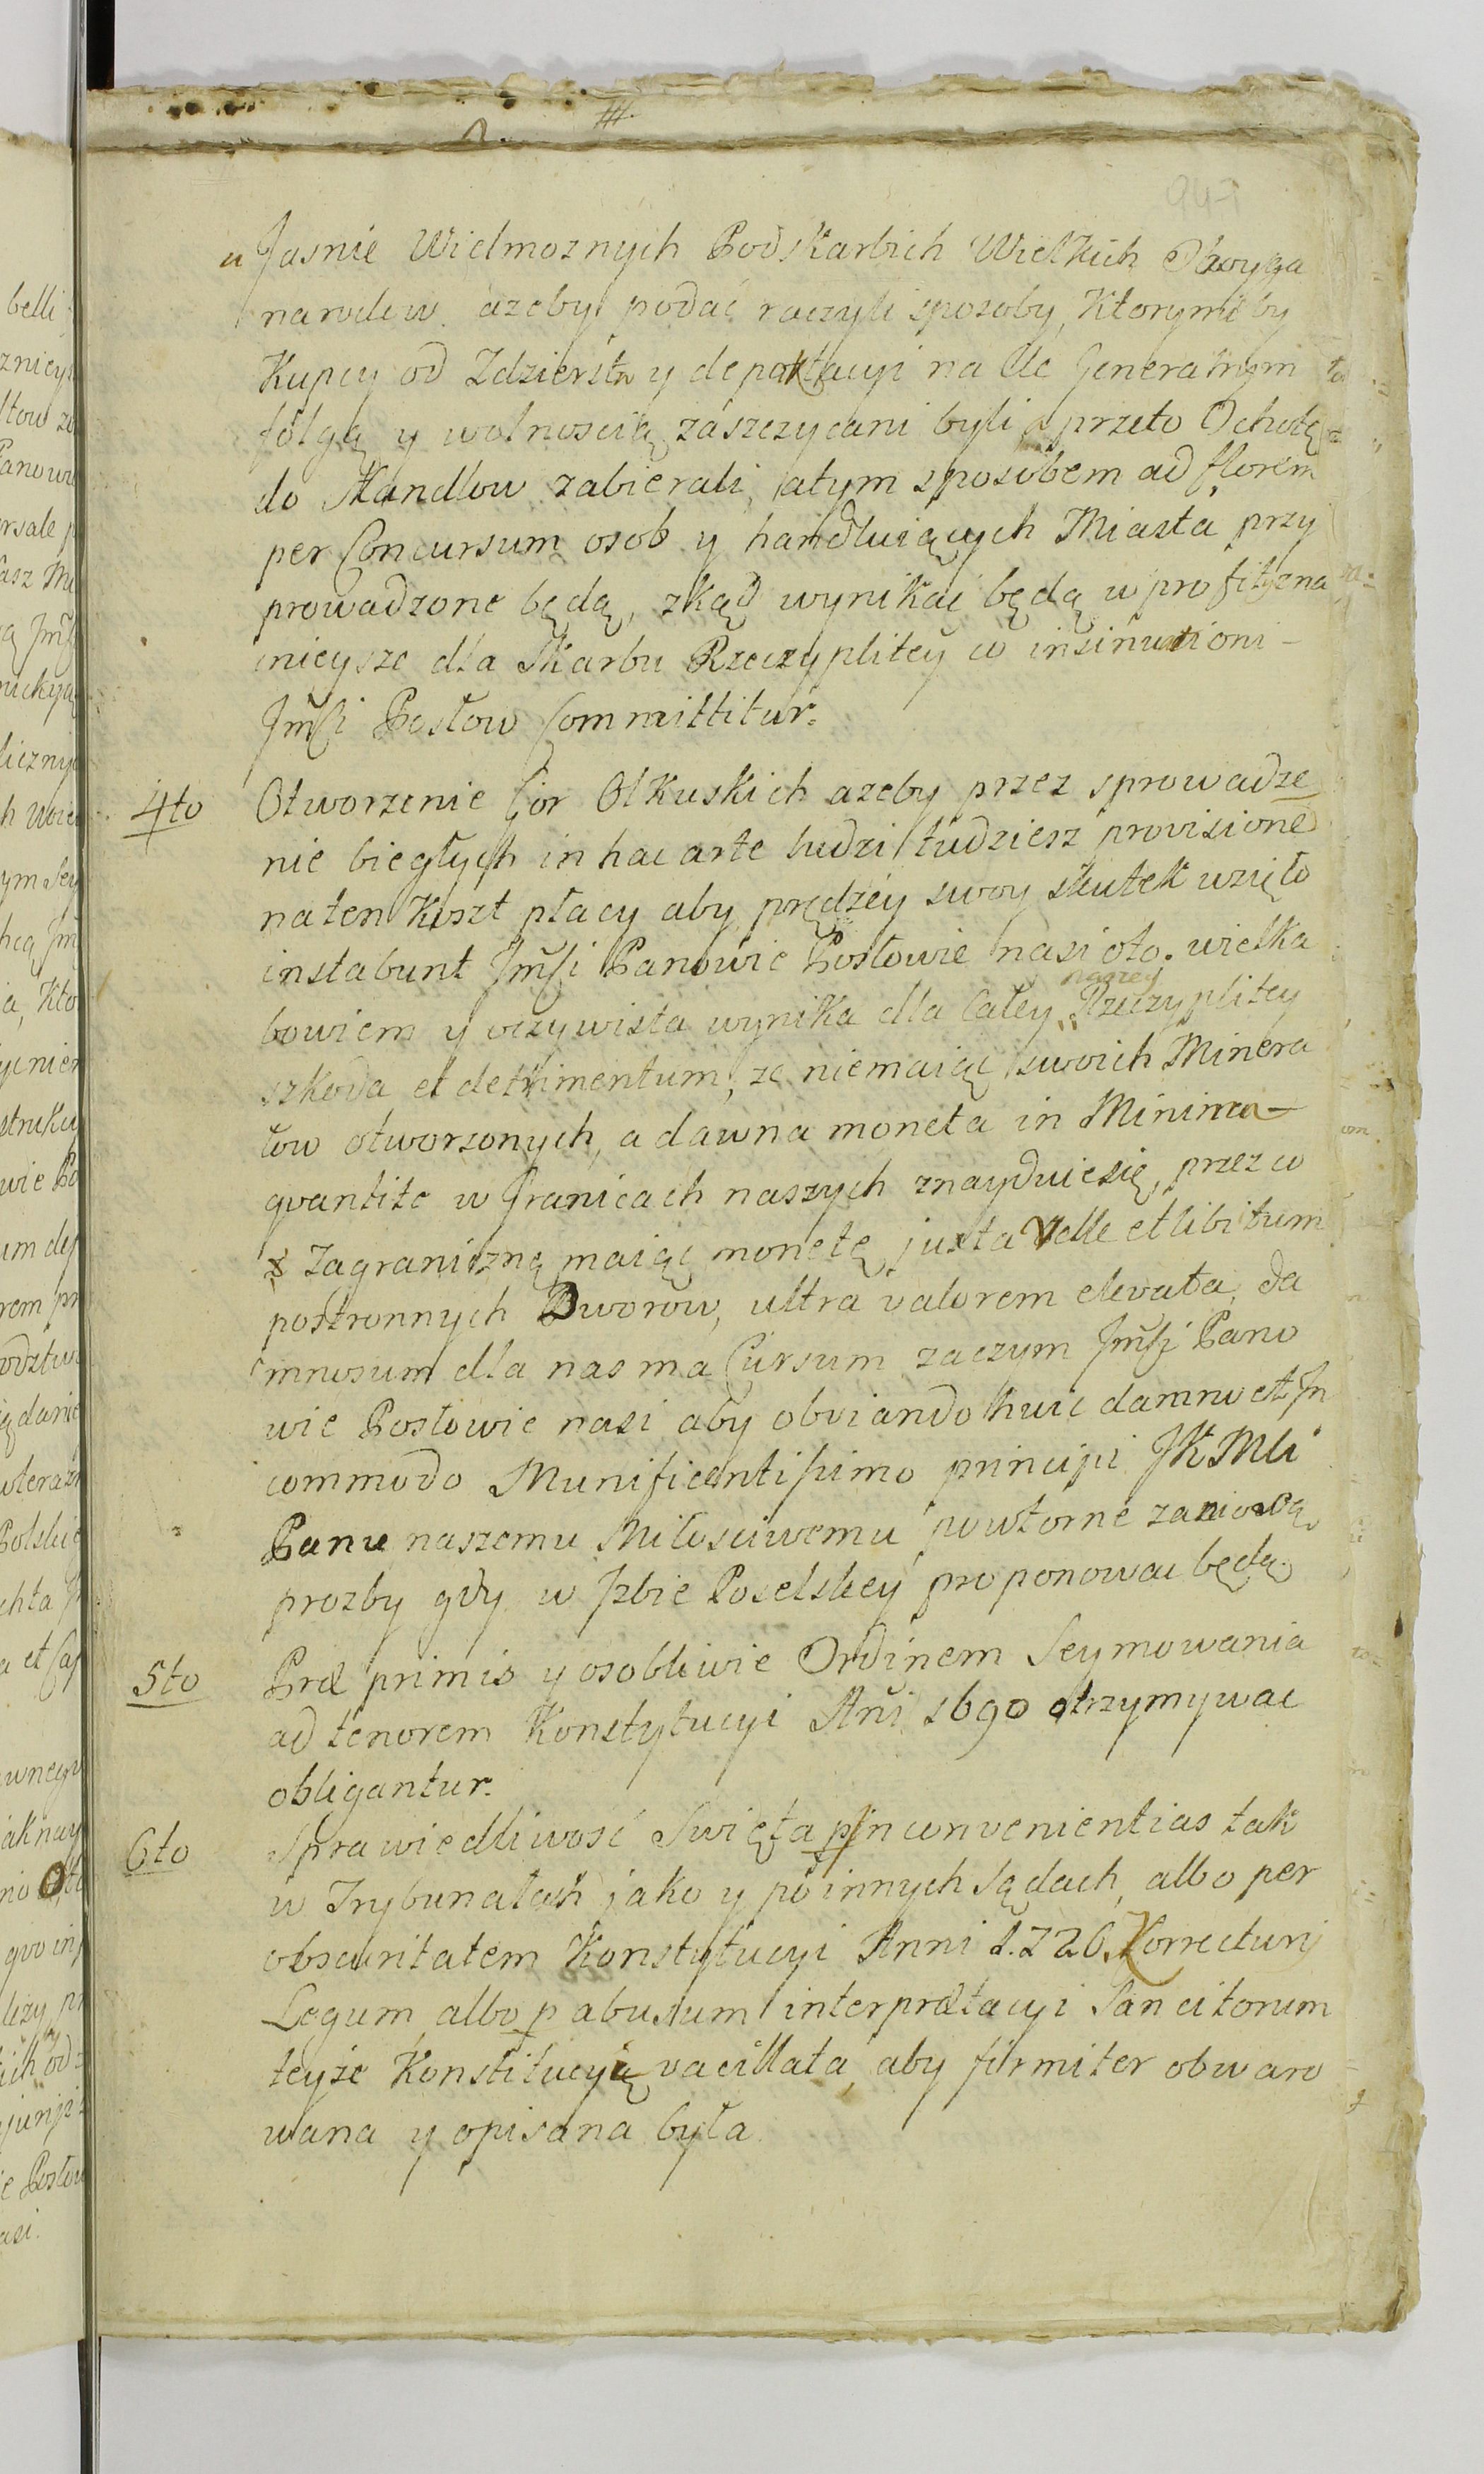 947
u Jasnie Wielmoznych Podskarbich Wielkich Oboyga
narodow azeby podać raczyli sposoby, Ktorymi by
Kupcy od Zdzierstw y depaktacyi na Cle Generalnym
folgą y wolnoscią zaszczycani byli, przeto Ochotę
do Handlow zabierali, a tym sposobem ad florem
per Concursum osob y handluiących Miasta przy
prowadzone będą, zkąd wynikać będą profity zna
cnieysze dla Skarbu Rzeczyplitey co insinuationi
Jmści Posłow Committitur.
4to Otworzenie Gor Olkuskich azeby przez sprowadze
nie biegłych in hac arte ludzi tudziesz provisionę
na ten Koszt płacy aby prędzey swoy skutek wzięło
instabunt Jmści Panowie Posłowie nasi oto. wielka
bowiem y oczywista wynika dla Całey naszey Rzeczyplitey
szkoda et detrimentum, ze niemaiąc swoich Minera
łow otworzonych, a dawna moneta in Minima
qvantite w Granicach naszych znayduie się, przez co
Zagraniczną maiąc monetę juxta Velle et libitum
postronnych Dworow, ultra valorem elevata, da
mnosum dla nas ma Cursum, zaczym Jmści Pano
wie Posłowie nasi aby obviando huic damno et In
commodo Munificentissimo principi JK Mci
Panu naszemu Miłosciwemu powtorne zaniosą
prozby gdy w Jzbie Poselskiey proponować będą.
5to Præ primis y osobliwie Ordinem Seymowania
ad tenorem Konstytucyi Ani 1690 otrzymywac
obligantur.
6to Sprawiedliwość Swięta p inconvenientias tak
w Trybunałach jako y po innych Sądach, albo per
obscuritatem Konstytucyi Anni 1726 Korrectury
Legum, albo p abusum interprætacyi Sancitorum
teyze Konstitucyi vacillata, aby firmiter obwaro
wana y opisana była.